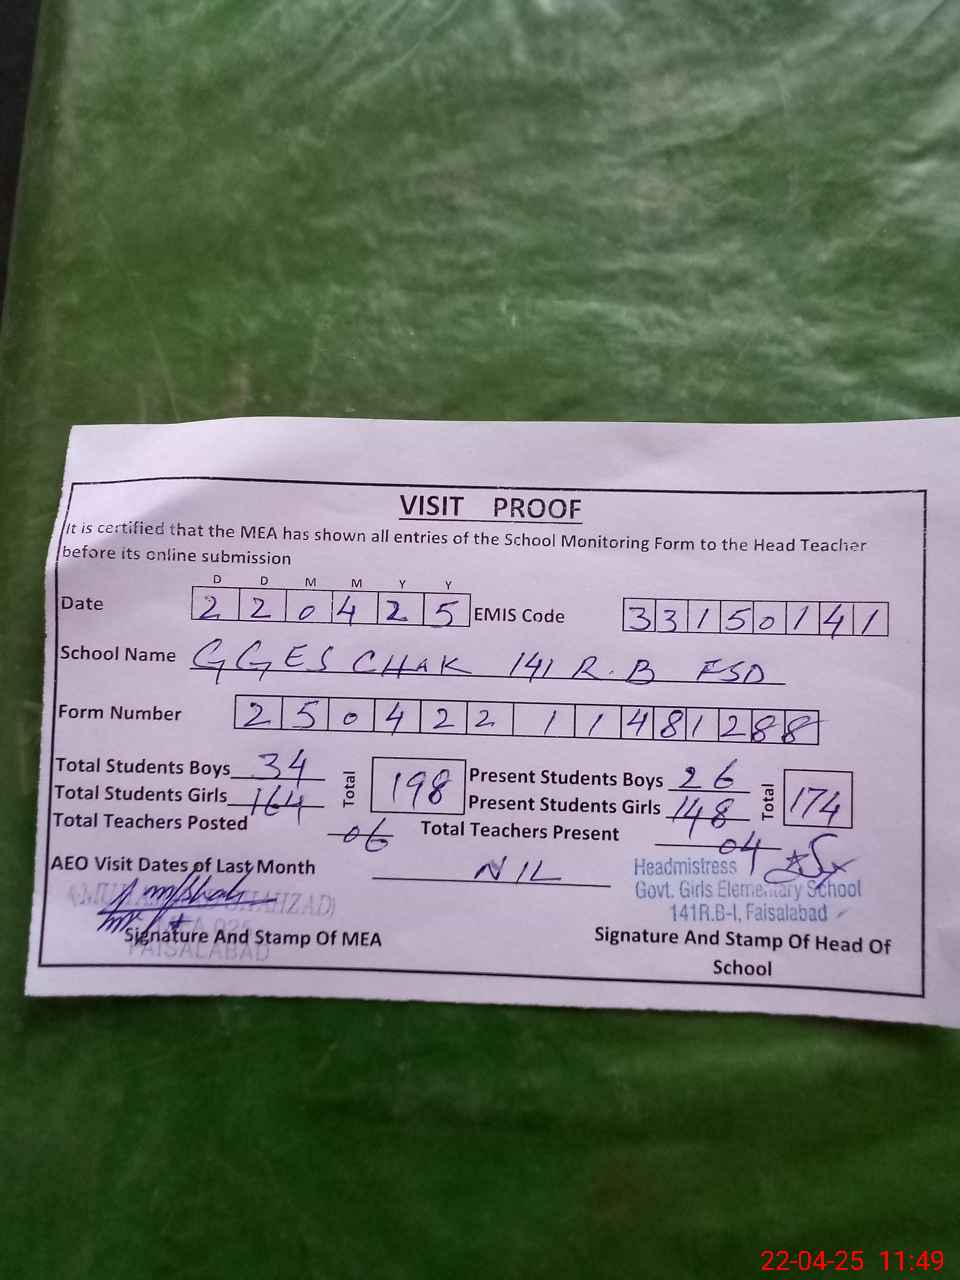 VISIT PROOF
It is certified that the MEA has shown all entries of the School Monitoring Form to the Head Teacher
before its online submission
D D M M Y Y
Date 2 2 0 4 2 5 EMIS Code 3 3 1 5 0 1 4 1
School Name GGES CHAK 141 R.B FSD
Form Number 2 5 0 4 2 2 1 1 4 8 1 2 8 8
Total Students Boys 34 Total 198 Present Students Boys 26 Total 174
Total Students Girls 164 Present Students Girls 148
Total Teachers Posted 06 Total Teachers Present 04
AEO Visit Dates of Last Month NIL
Headmistress
Govt. Girls Elementary School
141R.B-I, Faisalabad
SHAHZAD)
FAISALABAD
Signature And Stamp Of MEA
Signature And Stamp Of Head Of
School
22-04-25 11:49